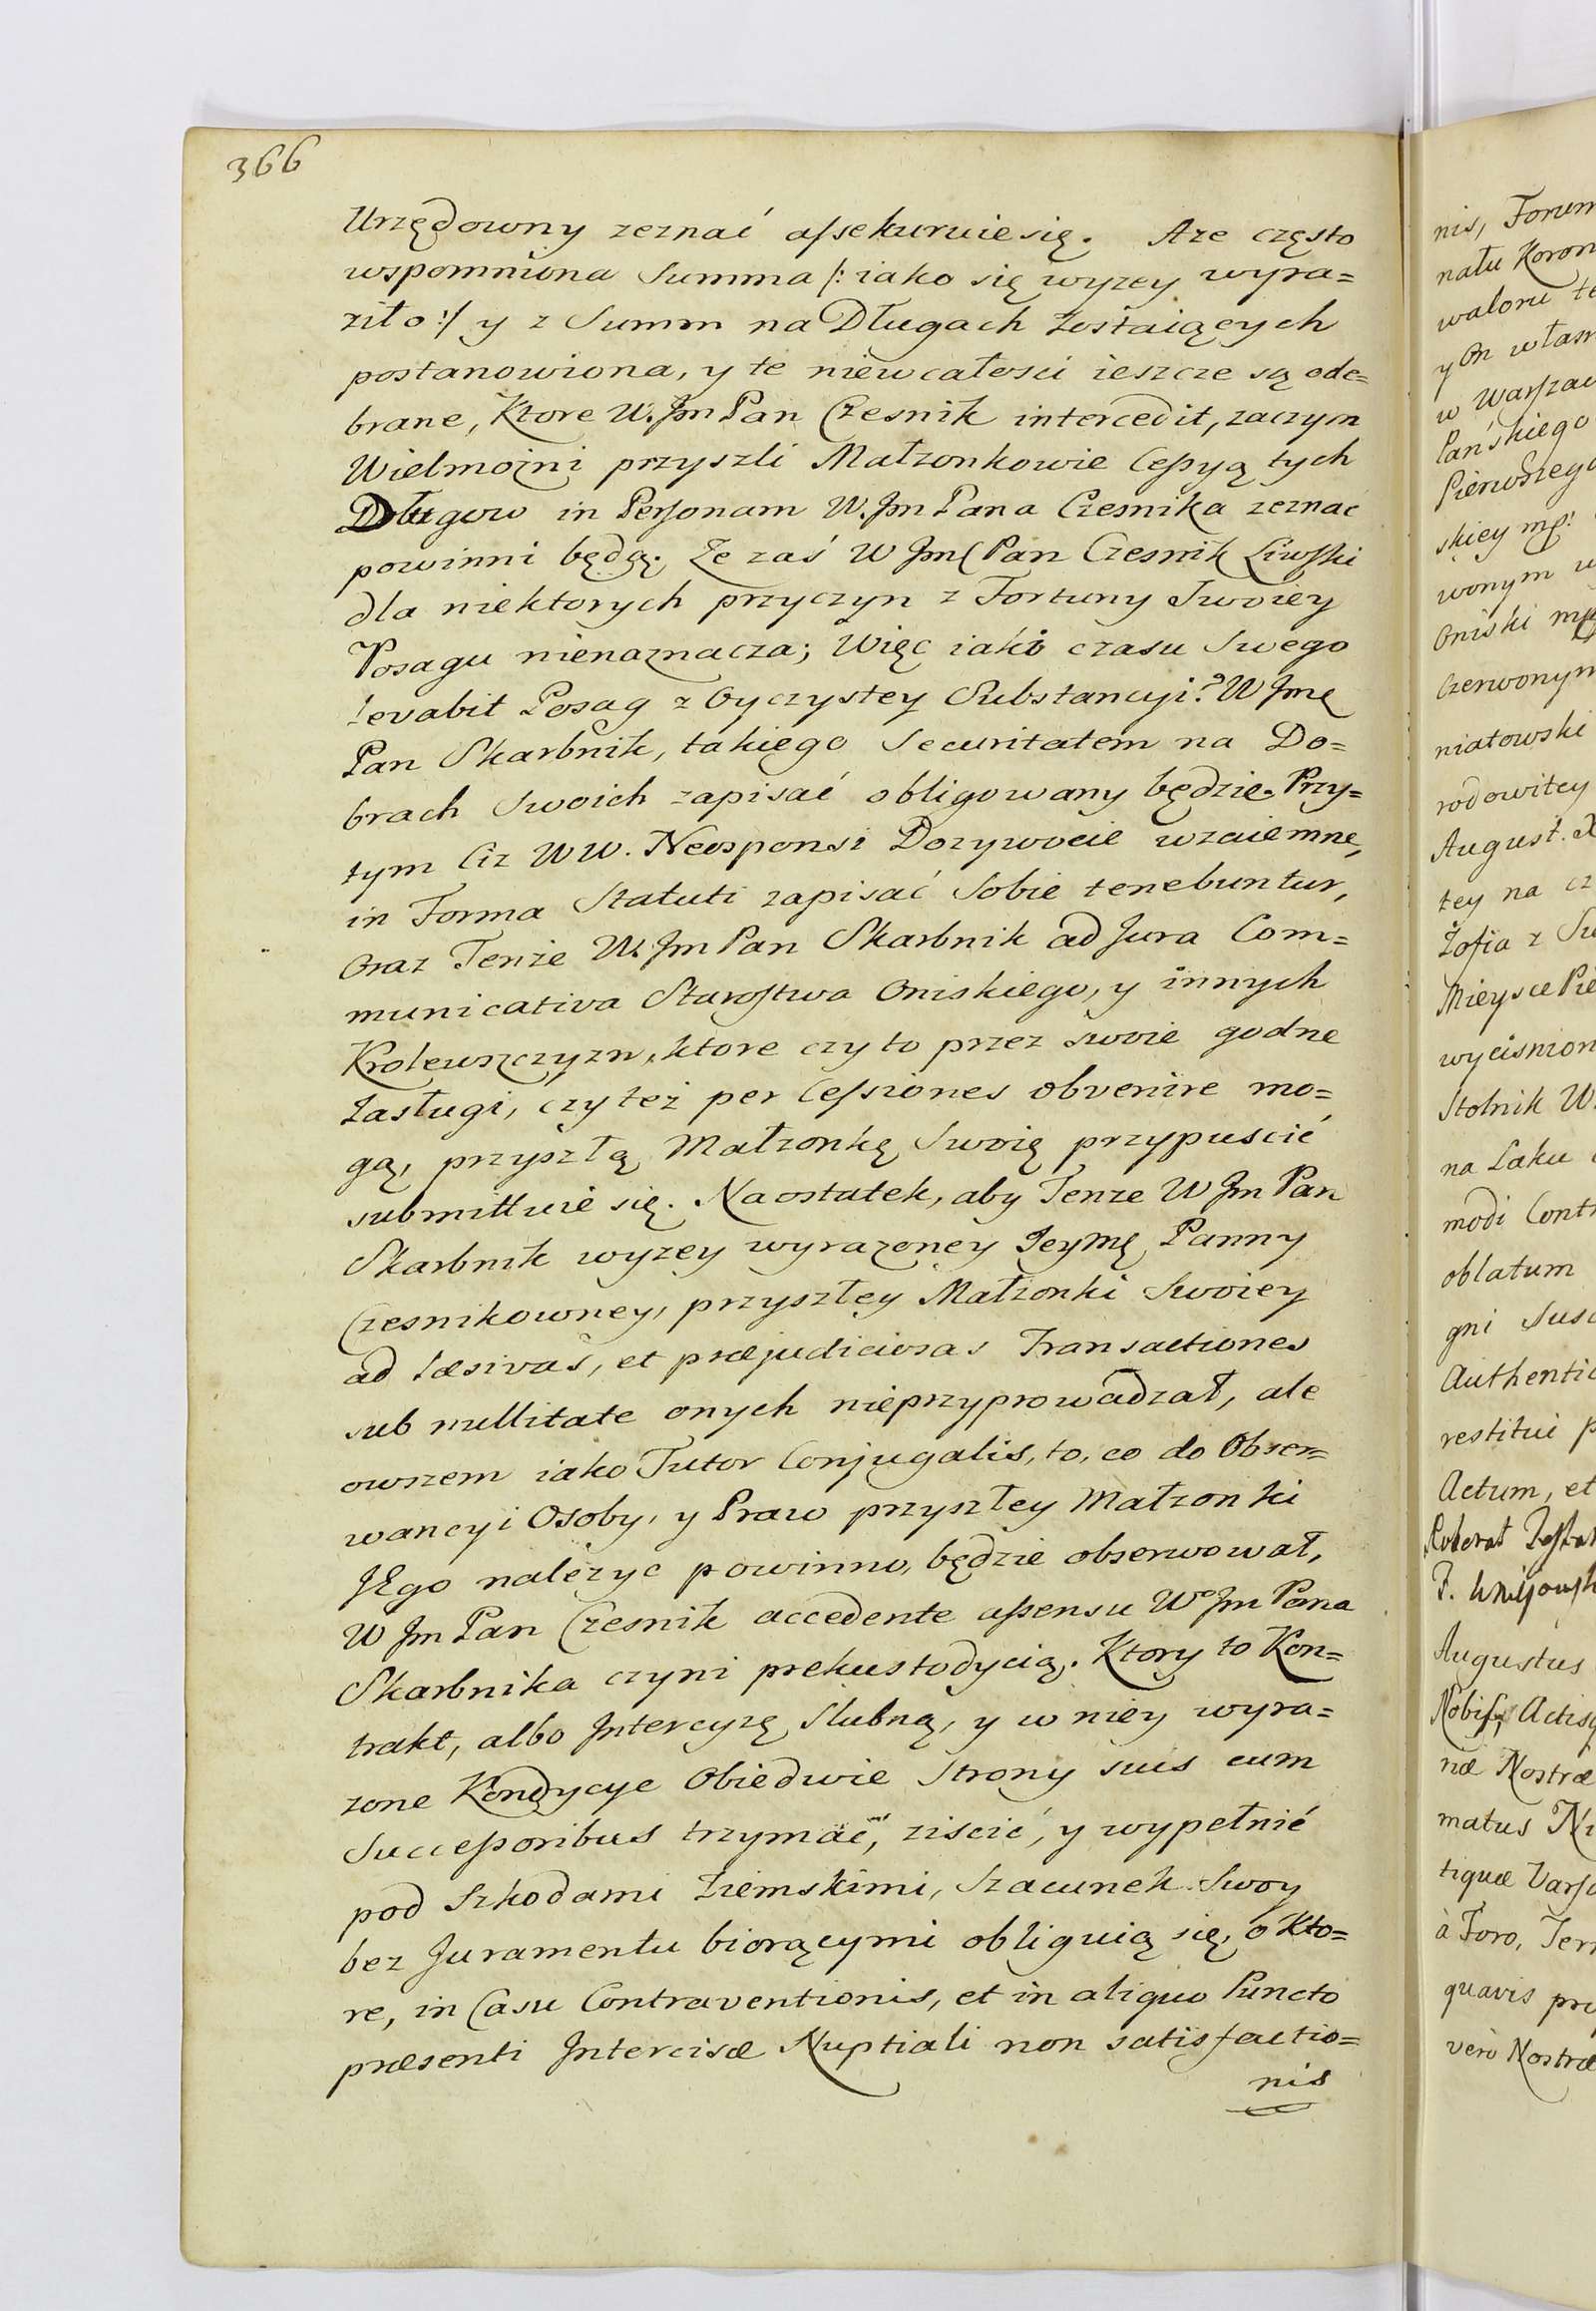 366
Urzędowny zeznać assekuruie się. Aze często
wspomniona Summa /: iako się wyzey wyra=
ziło :/ y z Summ na Długach Zostaiących
postanowiona, y te niewcałosci ieszcze są ode=
brane, Ktore W. Jm Pan Czesnik intercedit, zaczym
Wielmożni przyszli Małzonkowie Cessyą tych
Długow in Personam W. Jm Pana Czesnika zeznać
powinni będą. Ze zaś W Jmć Pan Czesnik Liwski
dla niektorych przyczyn z Fortuny Swoiey
Posagu nienaznacza; Więc iaki czasu Swego
levabit Posag z Oyczystey Substancyi? W Jmć
Pan Skarbnik, takiego Securitatem na Do=
brach Swoich zapisać obligowany będzie. Przy=
tym Ciz WW. Neosponsi Dozywocie wzaiemne,
in Forma Statuti zapisać Sobie tenebuntur,
Oraz Tenże W. Jm Pan Skarbnik ad Jura Com=
municativa Starostwa Oniskiego, y innych
Krolewszczyzn, ktore czy to przez swoie godne
Zasługi, czy też per Cessiones obvenire mo=
gą, przyszłą Małzonkę Swoię przypuscić
submittuie się. Naostatek, aby Tenze W Jm Pan
Skarbnik wyzey wyrazoney Jeymć Panny
Czesnikowney, przyszłey Małzonki Swoiey
ad læsivas, et præjudiciosas Transactiones
sub nullitate onych nieprzyprowadzał, ale
owszem iako Tutor Conjugalis, to, co do Obser=
wancyi Osoby, y Praw przyszłey Małzonki
JEgo nalezyc powinno, będzie obserwował,
W Jm Pan Czesnik accedente assensu Wo Jm Pana
Skarbnika czyni prekustodycią. Ktory to Kon=
trakt, albo Intercyzę Slubną, y w niey wyra=
zone Kondycye Obiedwie Strony suis cum
Successoribus trzymać, ziscić, y wypełnić
pod Szkodami Ziemskimi, Szacunek Swoy
bez Juramentu biorącymi obliguią się, o Kto=
re, in Casu Contraventionis, et in aliquo Puncto
præsenti Intercisæ Nuptiali non satisfactio=
nis
nis, Forum
natu Koron
waloru te
y On własn
w Warszaw
Pańskiego
Pierwszego
skiey mp:
wonym w
Oniski mp
Czerwonym
niatowski
rodowitey
August. X
tey na cz
Zofia z Su
Mieysce Pie
wyciśnion
Stolnik W.
na Laku
modi Contr
oblatum
gni Susc
Authentic
restitui p
Actum, et
Augustus
Nobis, Actisq
næ Nostræ
matus
tiquæ Varso
à Foro, Terr
quavis pro
verò Nostræ